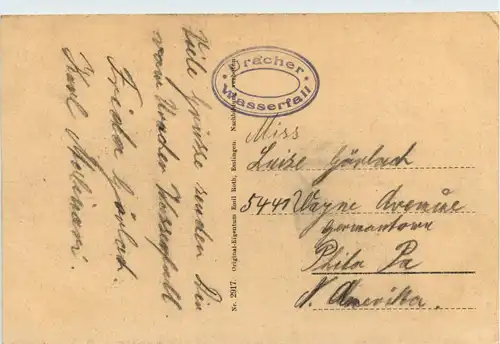 Viele Grüsse senden Dir
vom Uracher Wasserfall
Frieda Görlach.
Karl
Uracher
Wasserfall
Nr. 2917. Original-Eigentum Emil Roth, Esslingen. Nachdruck verboten
Miss
Luise Görlach
5441 Wayne Avenue
Germantown
Phila Pa
N. Amerika.